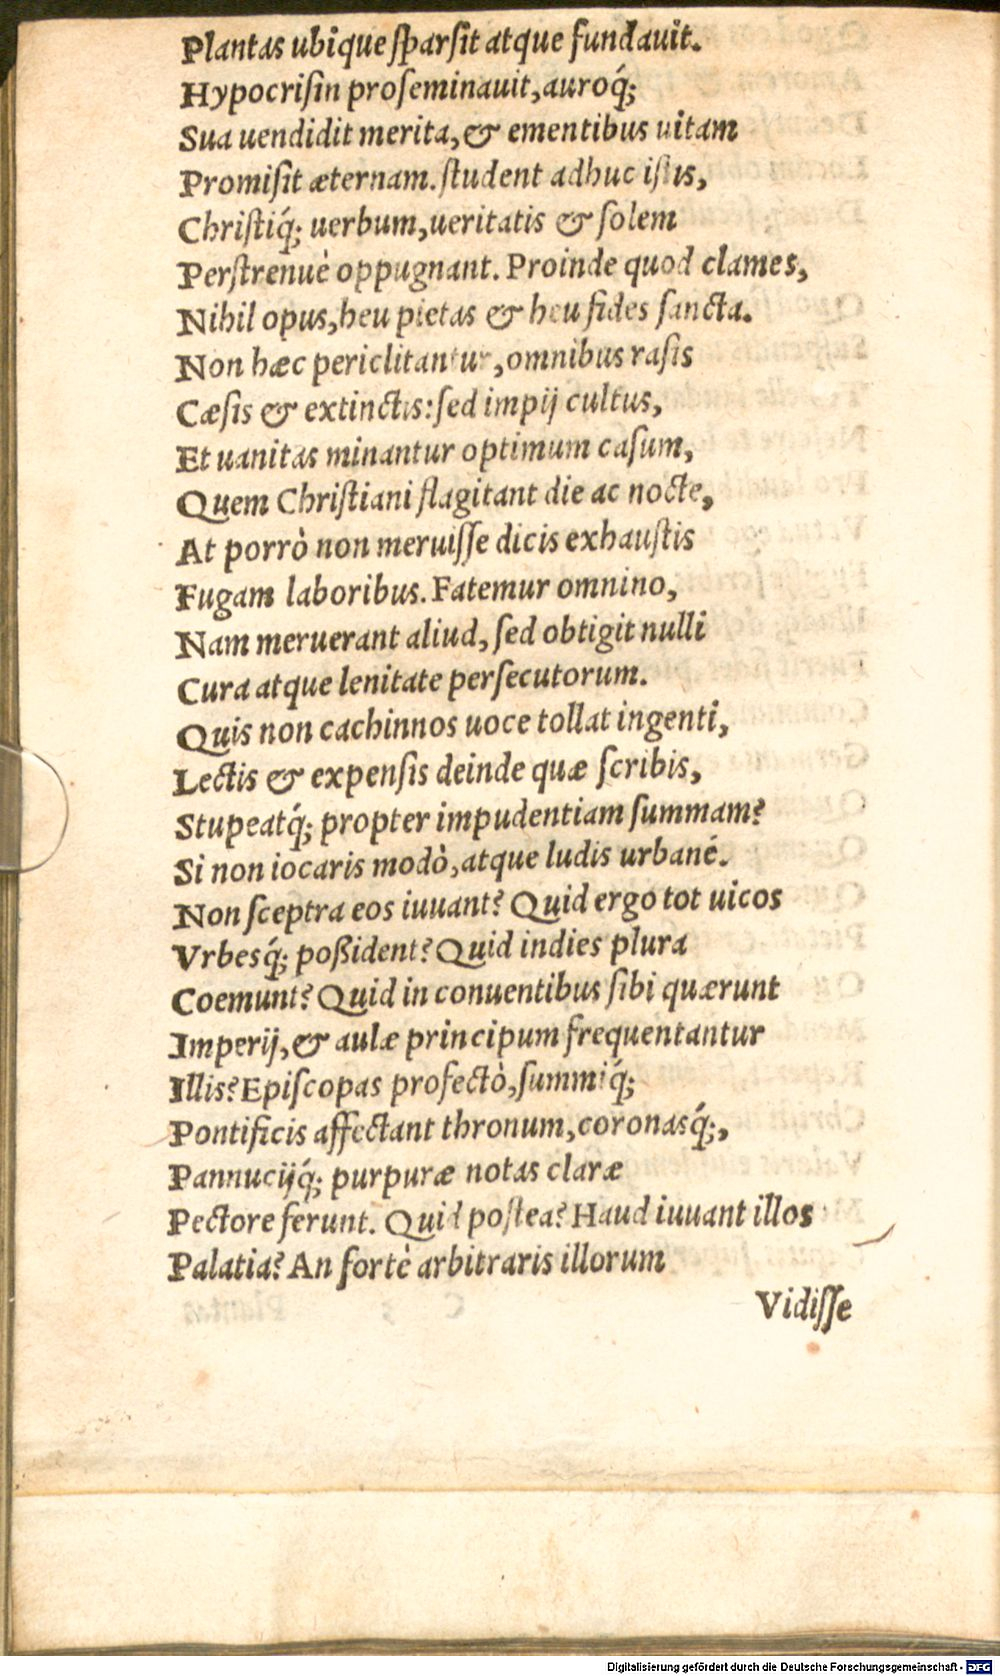 Plantas ubique ſparſit atque fundauit.
Hypocriſin proſeminauit, auroq́;
Sua uendidit merita, & ementibus uitam
Promiſit æternam. ſtudent adhuc iſtis,
Chriſtiq́; uerbum, ueritatis & ſolem
Perſtrenuè oppugnant. Proinde quod clames,
Nihil opus, heu pietas & heu fides ſancta.
Non hæc periclitantur, omnibus raſis
Cæſis & extinctis: ſed impij cultus,
Et uanitas minantur optimum caſum,
Quem Chriſtiani flagitant die ac nocte,
At porrò non meruiſſe dicis exhauſtis
Fugam laboribus. Fatemur omnino,
Nam meruerant aliud, ſed obtigit nulli
Cura atque lenitate perſecutorum.
Quis non cachinnos uoce tollat ingenti,
Lectis & expenſis deinde quæ ſcribis,
Stupeatq́; propter impudentiam ſummam?
Si non iocaris modò, atque ludis urbané.
Non ſceptra eos iuuant? Quid ergo tot uicos
Vrbesq́; poßident? Quid indies plura
Coemunt? Quid in conuentibus ſibi quærunt
Imperij, & aulæ principum frequentantur
Illis? Epiſcopas profectò, ſummiq́;
Pontificis affectant thronum, coronasq́;,
Pannucijq́; purpuræ notas claræ
Pectore ferunt. Quid poſtea? Haud iuuant illos
Palatia? An fortè arbitraris illorum
Vidiſſe
Digitalisierung gefördert durch die Deutsche Forschungsgemeinschaft - DFG